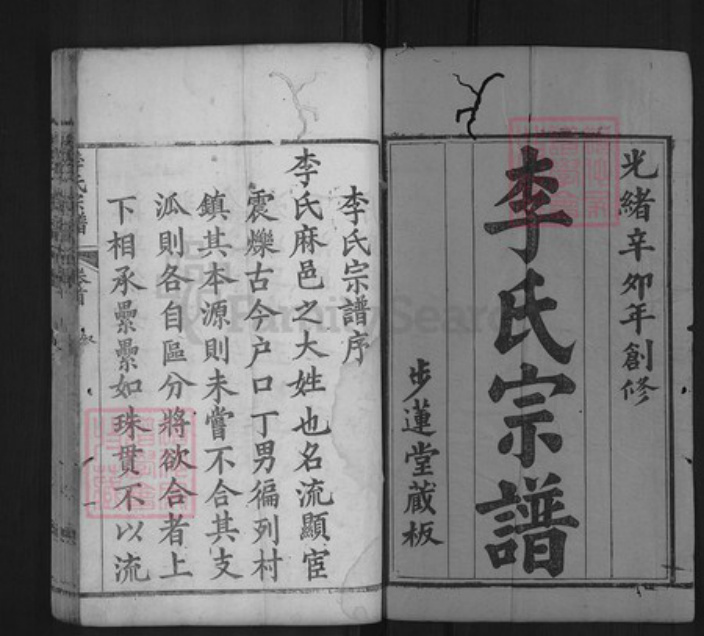 光緒辛卯年創修
李氏宗譜
步蓮堂藏板
李氏宗譜序
李氏麻邑之大姓也名流顯宦
震爍古今户口丁男徧列村
鎮其本源則未嘗不合其支
派則各自區分將欲合者上
下相承纍纍如珠貫不以流
李氏宗譜
卷首
FamilySearch